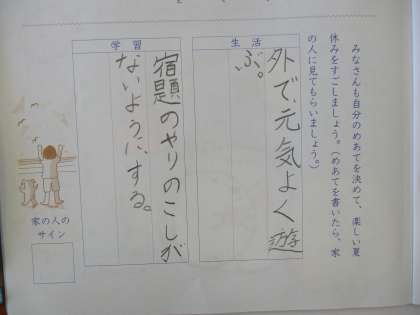 みなさんも自分のめあてを決めて、楽しい夏
休みをすごしましょう。（めあてを書いたら、家
の人に見てもらいましょう。）
生活
外で、元気よく遊
ぶ。
学習
宿題のやりのこしが
ないように、する。
家の人の
サイン